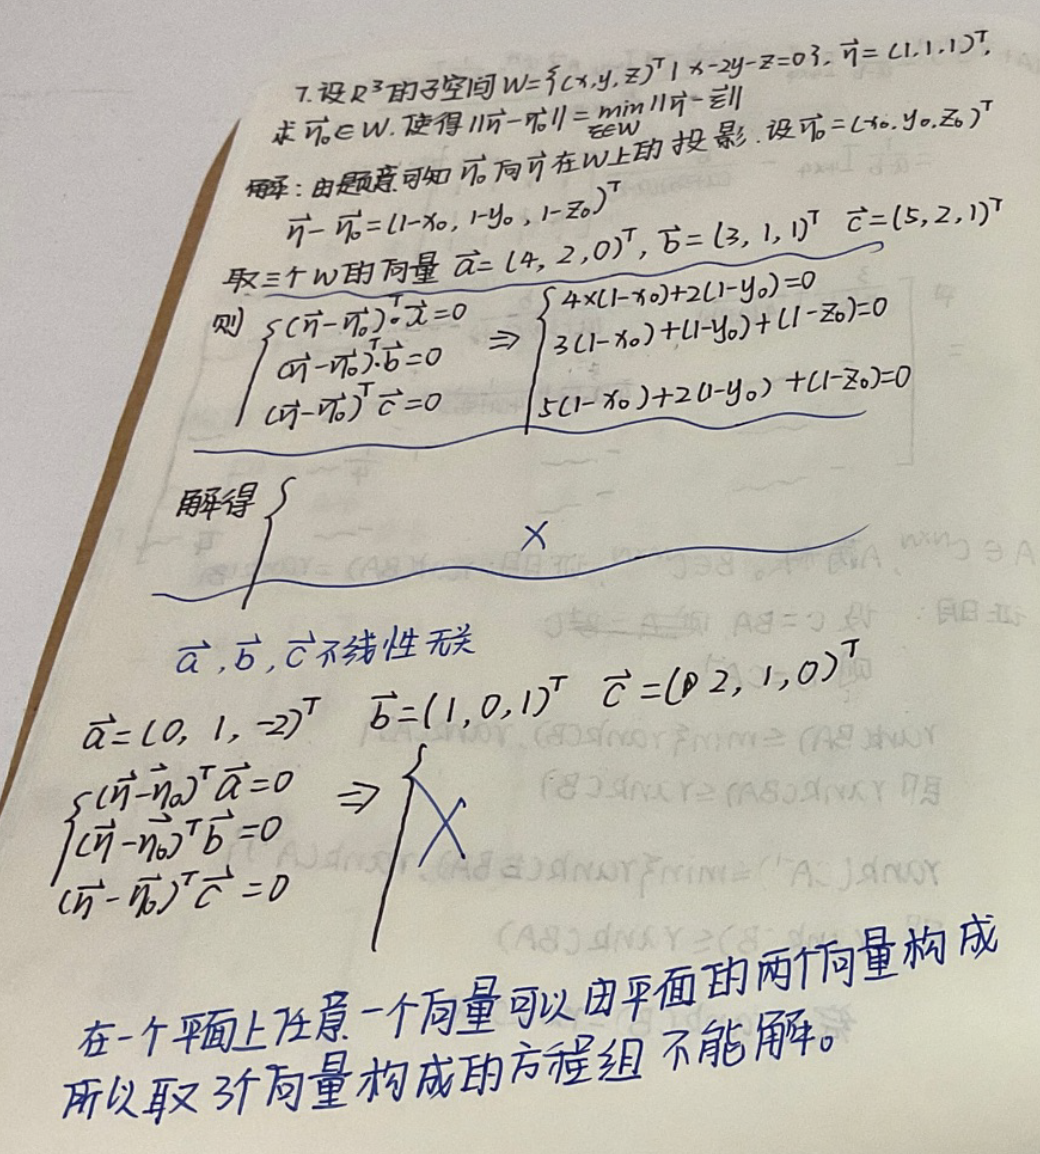 7.设R³的子空间W={(x,y,z)ᵀ|x-2y-z=0}, η⃗=(1,1,1)ᵀ,
求η⃗₀∈W.使得||η⃗-η⃗₀||=min||η⃗-ξ⃗||
ξ∈W
解:由题意可知η⃗₀向η⃗在W上的投影.设η⃗₀=(x₀,y₀,z₀)ᵀ
η⃗-η⃗₀=(1-x₀,1-y₀,1-z₀)ᵀ
取三个W的向量 a⃗=(4,2,0)ᵀ, b⃗=(3,1,1)ᵀ c⃗=(5,2,1)ᵀ
则 {(η⃗-η⃗₀)ᵀ·a⃗=0 ⇒ {4×(1-x₀)+2(1-y₀)=0
(η⃗-η⃗₀)ᵀ·b⃗=0 3(1-x₀)+(1-y₀)+(1-z₀)=0
(η⃗-η⃗₀)ᵀc⃗=0 5(1-x₀)+2(1-y₀)+(1-z₀)=0
解得 {
×
a⃗,b⃗,c⃗不线性无关
a⃗=(0,1,-2)ᵀ b⃗=(1,0,1)ᵀ c⃗=(2,1,0)ᵀ
{(η⃗-η⃗₀)ᵀa⃗=0 ⇒ { ×
(η⃗-η⃗₀)ᵀb⃗=0
(η⃗-η⃗₀)ᵀc⃗=0
在一个平面上任意一个向量可以由平面的两个向量构成
所以取3个向量构成的方程组不能解。